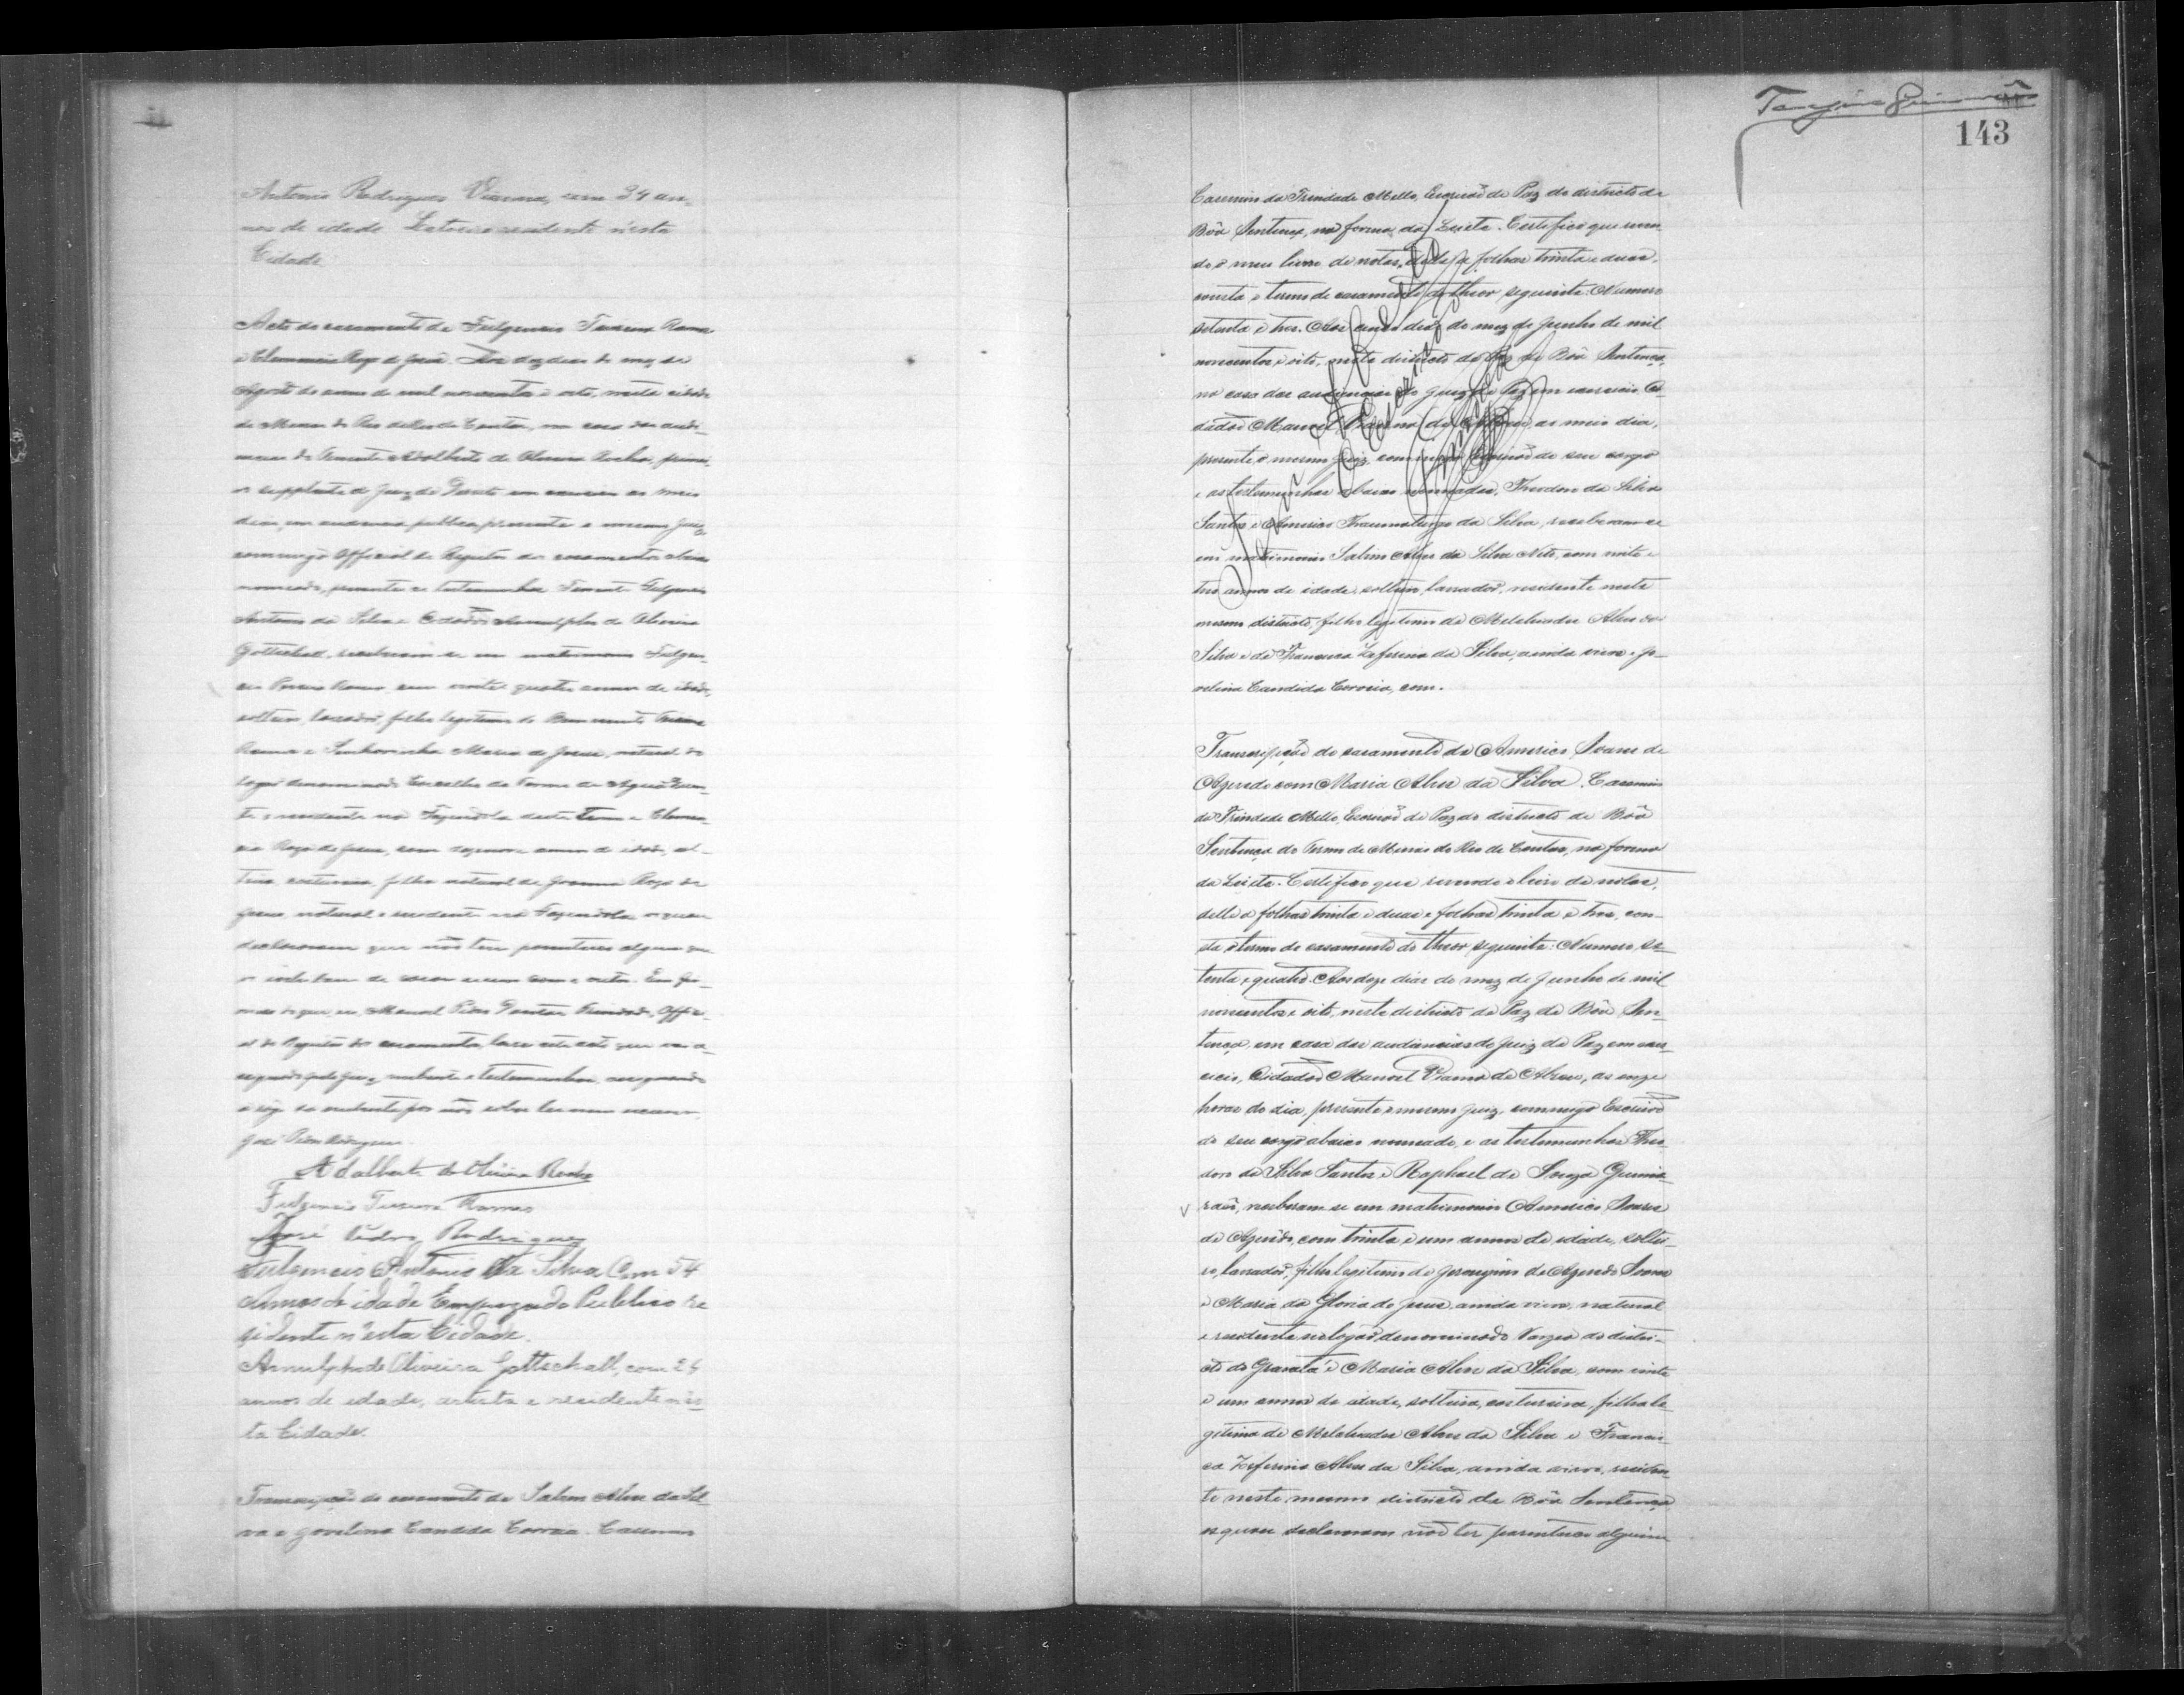 Antonio Rodrigues Vianna, com 34 an-
nos de idade residente n'esta
Cidade
Acto do casamento de Fulgencio Teixeira Ramos
e Clemencia Rosa de Jesus. Aos dez dias do mez de
Agosto do anno de mil novecentos e oito, nesta cidade
de Minas do Rio de Contas, em casa das audi-
encias do Tenente Adalberto de Oliveira Rocha, primei-
ro supplente do Juiz de Direito em exercicio ao meio
dia, em audiencia publica, presente o mesmo Juiz
commigo Official do Registro dos casamentos abaixo
nomeado, presentes as testemunhas Tenente Fulgencio
Antonio da Silva e Cidadão Arnulpho de Oliveira
Gottschall, receberam-se em matrimonio Fulgen-
cio Teixeira Ramos com vinte e quatro annos de idade,
solteiro, lavrador, filho legitimo de Teixeira
Ramos e Senhorinha Maria de Jesus, natural do
logar denominado do Termo de Agua Quen-
te e residente na Fazendola deste Termo e Clemen-
cia Rosa de Jesus, com dezenove annos de idade, sol-
teira, costureira, filha natural de Joanna Rosa de
Jesus, natural e residente na Fazendola, os quaes
declararam que não tem parentesco algum que
os inhibam de casar-se um com o outro. Em fir-
meza do que eu, Manoel Dantas Trindade, Offici-
al do Registro dos casamentos, lavro este acto que vai as-
signado pelo Juiz, nubente e testemunhas, assignando
a rogo da nubente por não saber ler nem escrever,
José Pedro Rodrigues.
Adalberto de Oliveira Rocha
Fulgencio Teixeira Ramos
José Pedro Rodrigues
Fulgencio Antonio da Silva Com 54
annos de idade Empregado Publico re
zidente n'esta Cidade.
Arnulpho de Oliveira Gottschall, com 26
annos de idade, artista e residente n'es-
ta Cidade.
Transcripção do casamento de Salino Alves da Sil-
va e Jovelina Candida Correia. Casemiro
143
Casemiro da Trindade Mello, Escrivão de Paz do districto de
Bôa Sentença, na forma da Lei etc. Certifico que reven-
do o meu livro de notas, delle a folhas trinta e duas,
consta o termo de casamento do theor seguinte: Numero
setenta e tres. Aos dias do mez de Junho de mil
novecentos e oito, neste districto de Paz de Bôa Sentença,
na casa das audiencias do Juiz de Paz em exercicio Ci-
dadão Manoel Vianna de Abreu, ao meio dia,
presente o mesmo Juiz, commigo Escrivão de seu cargo
e as testemunhas abaixo nomeadas, Theodoro da Silva
Santos e Americo Thaumaturgo da Silva, receberam-se
em matrimonio Salino Alves da Silva Neto, com vinte e
tres annos de idade, solteiro, lavrador, residente neste
mesmo districto, filho legitimo de Melchiades Alves da
Silva e de Francisca Zeferina da Silva, ainda vivos e Jo-
velina Candida Correia, com.
Transcripção do casamento de Americo Soares de
Azevedo com Maria Alves da Silva. Casemiro
da Trindade Mello, Escrivão de Paz do districto de Bôa
Sentença do Termo de Minas do Rio de Contas, na forma
da Lei etc. Certifico que revendo o livro de notas,
delle a folhas trinta e duas e folhas trinta e tres, con-
sta o termo de casamento do theor seguinte: Numero se-
tenta e quatro. Aos doze dias do mez de Junho de mil
novecentos e oito, neste districto de Paz de Bôa Sen-
tença, em casa das audiencias do Juiz de Paz em exer-
cicio, Cidadão Manoel Vianna de Abreu, as onze
horas do dia, presente o mesmo Juiz, commigo Escrivão
de seu cargo abaixo nomeado, e as testemunhas Theo-
doro da Silva Santos e Raphael de Souza Guima-
rães, receberam-se em matrimonio Americo Soares
de Azevedo, com trinta e um annos de idade, soltei-
ro, lavrador, filho legitimo de Jeronymo de Azevedo Soares
e Maria da Gloria de Jesus, ainda vivos, natural
e residente no logar denominado Varzea do distri-
cto do Gravatá e Maria Alves da Silva, com vinte
e um annos de idade, solteira, costureira, filha le-
gitima de Melchiades Alves da Silva e Francis-
ca Zeferina Alves da Silva, ainda vivos, residen-
te neste mesmo districto de Bôa Sentença
os quaes declararam não ter parentesco algum